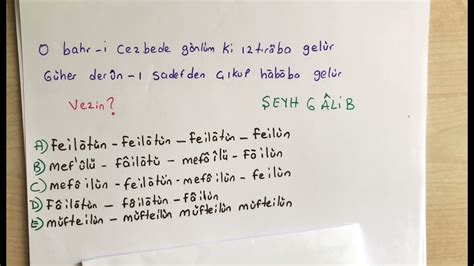 O bahr-i cezbede gönlüm ki ıztırâba gelür
Güher derûn-ı sadefden çıkup habâba gelür
Vezin? ŞEYH GÂLİB
A) feilâtün - feilâtün - feilâtün - feilün
B) mef'ûlü - fâilâtü - mefâîlü - fâilün
C) mefâilün - feilâtün - mefâilün - feilün
D) fâilâtün - fâilâtün - fâilün
E) müfteilün - müfteilün müfteilün müfteilün